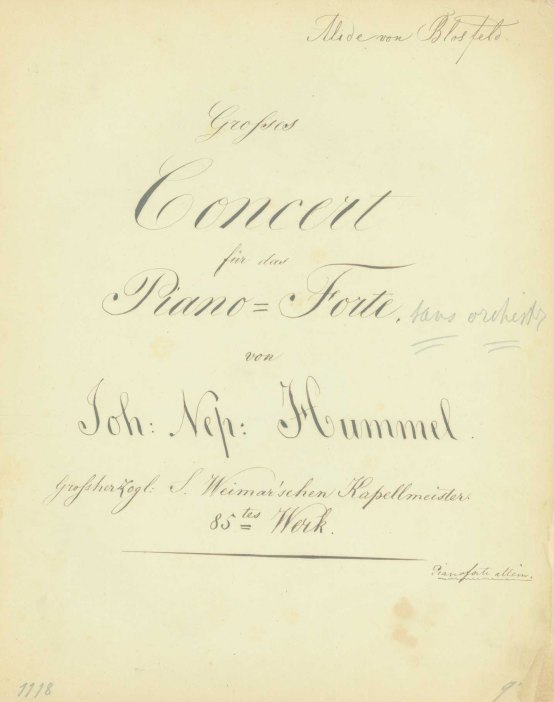 von Blosfeld.
Grosses
Concert
für das
Piano=Forte. sans orchestr
von
Joh: Nep: Hummel.
Grossherzogl: S. Weimar'schen Kapellmeister.
85tes Werk.
Pianoforte allein.
1118